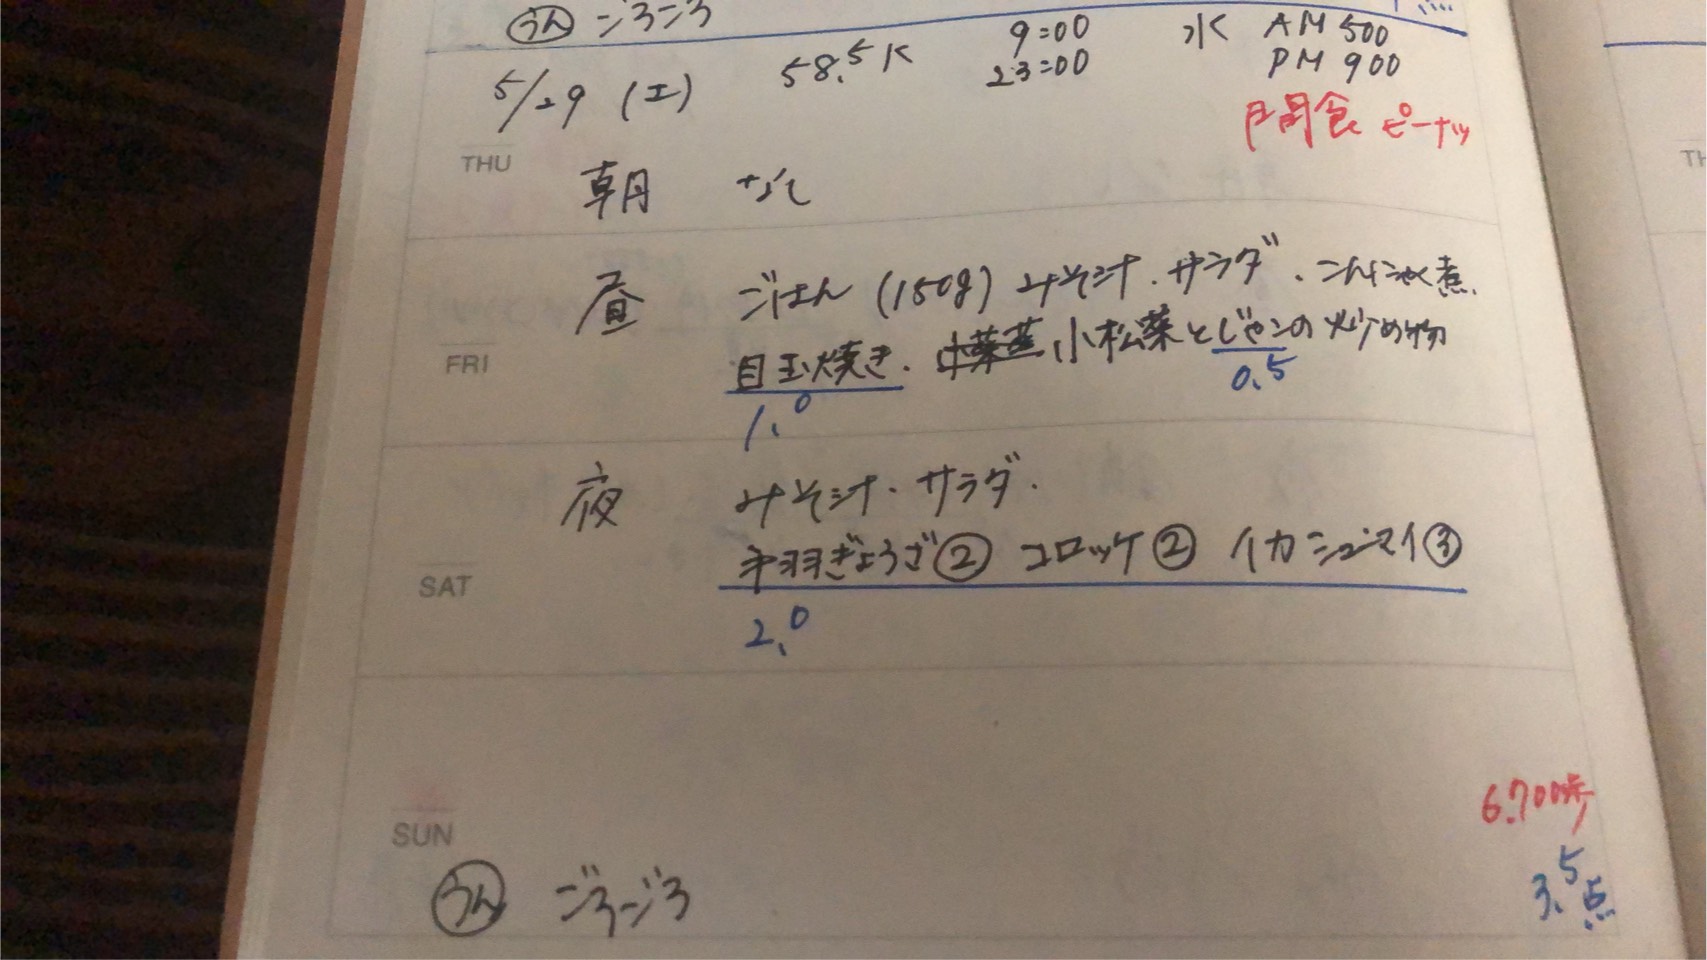 うん ごろごろ
点
5/29 (土) 58.5K 9:00 水 AM 500
23:00 PM 900
間食 ピーナッツ
THU
朝 なし
昼 ごはん (150g) みそ汁. サラダ. こんにゃく煮.
FRI
目玉焼き. 小松菜とじゃこの炒め物
1.0 0.5
夜 みそ汁. サラダ.
手羽ぎょうざ② コロッケ② イカシューマイ③
SAT
2.0
6.700歩
SUN
うん ごろごろ 3.5点
TH